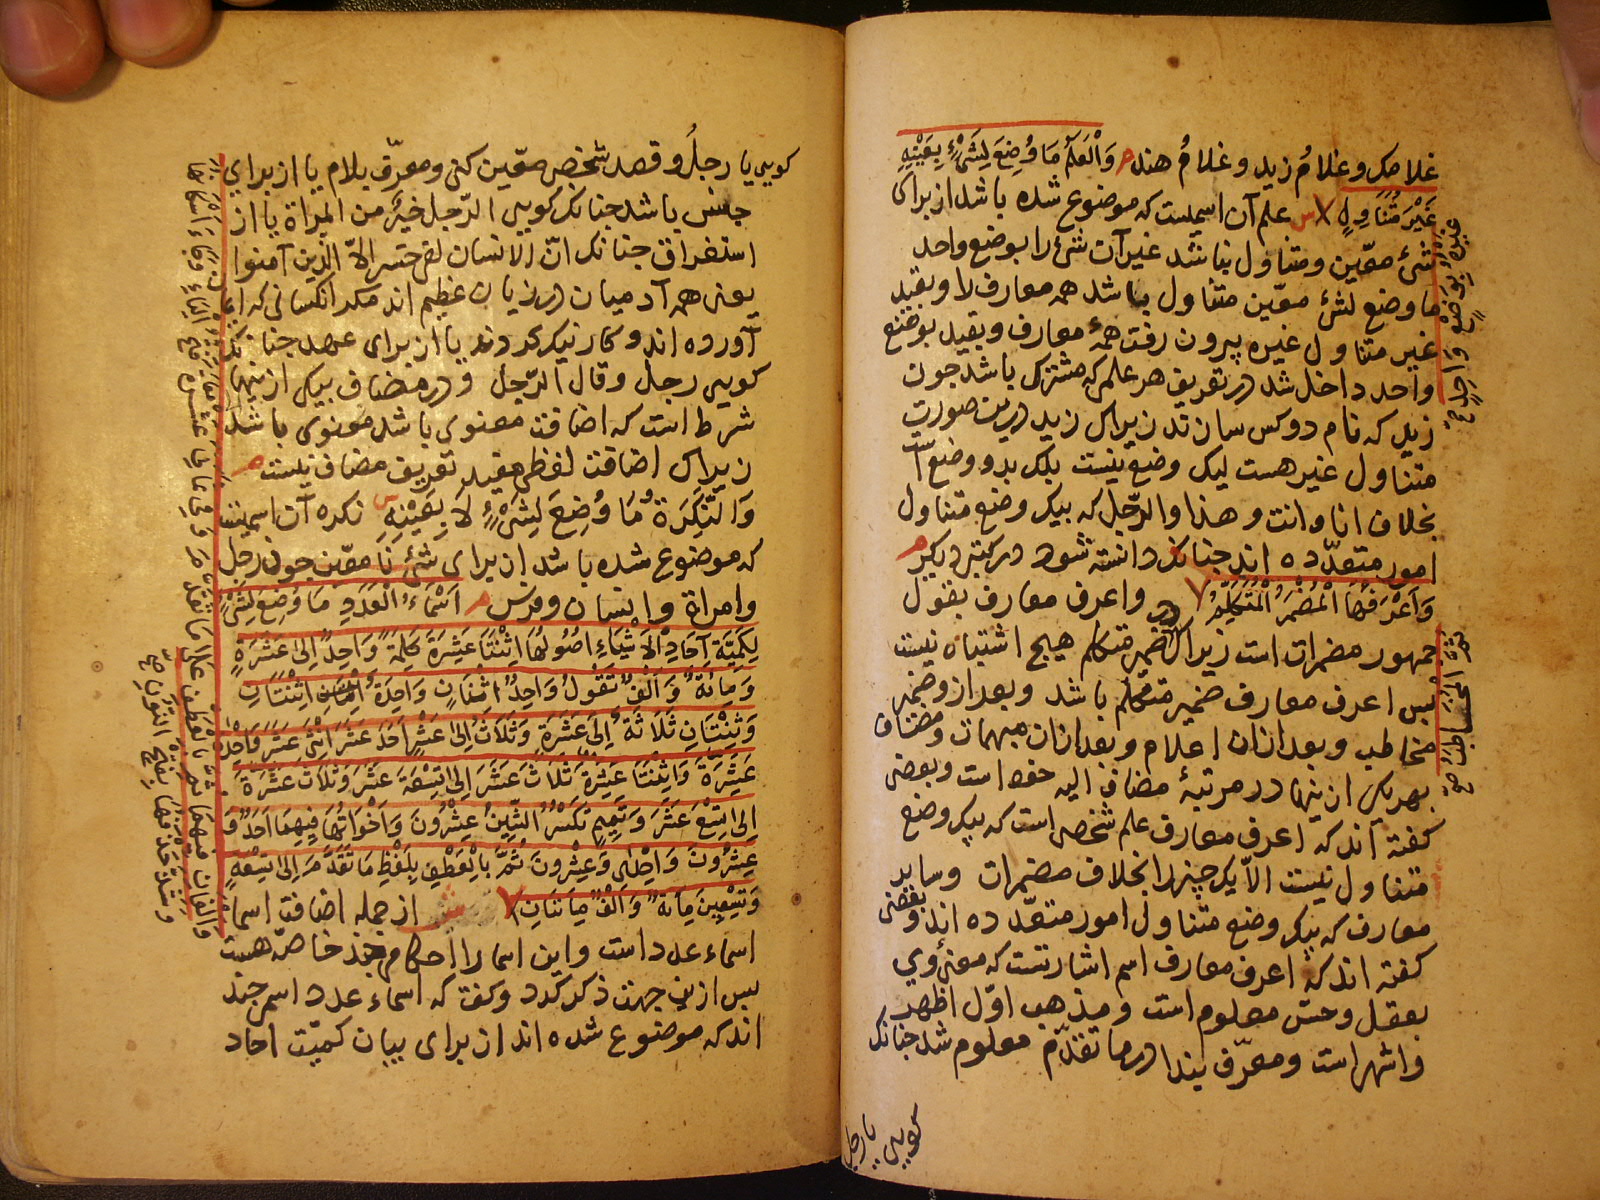 غلامک و غلامُ زید و غلامُ هند م وَالْعَلَمُ مَا وُضِعَ لِشَیْءٍ بِعَیْنِهِ
غَیْرَ مُتَنَاوِلٍ س علم آن اسمیست که موضوع شده باشد از برای
شئ معیّن و متناول نباشد غیر آن شئ را بوضع واحد
ما وضع لشئ معین متناول باشد همه معارف را و بقید
غیر متناول غیره بیرون رفت همهٔ معارف و بقید بوضع
واحد داخل شد در تعریف هر علم که مشترک باشد جون
زید که نام دو کس سازند زیراک زید درین صورت
متناول غیر هست لیک وضع نیست بلک بدو وضع است
بخلاف انا و انت و هذا والرّجل که بیک وضع متناول
امور متعدّده اند جنانک دانسته شود در کتب دیکر م
وَاَعْرَفُهَا الْمُضْمَرُ الْمُتَكَلِّمُ و اعرف معارف بقول
جمهور مضمرات است زیراک ضمیر متکلم هیج اشتباه نیست
بس اعرف معارف ضمیر متکلّم باشد و بعد ازو ضمیر
مخاطب و بعد ازان اعلام و بعد ازان مبهمات و مضاف
بهر یکی ازینها در مرتبهٔ مضاف الیه خود است و بعضی
کفته اند که اعرف معارف علم شخصی است که بیک وضع
متناول نیست الّا یک چیز را بخلاف مضمرات و سایر
معارف که بیک وضع متناول امور متعدّده اند و بعضی
کفته اند که اعرف معارف اسم اشارتست که معنئ وی
بعقل و حس معلوم است و مذهب اوّل اظهر
و اشهر است و معرّف بندا در ما تقدّم معلوم شد جنانک
کویی یا رجل
غیرهُ بِوَضْعٍ وَاحِدٍ صح
ثمّ المخاطبُ صح
کویی یا رجلُ و قصد شخص معیّن کنی و معرّف بلام یا از برای
جنس باشد جنانک کویی الرّجل خیرٌ من المراة یا از
استغراق جنانک انّ الانسان لفی خسر الاّ الّذین آمنوا
یعنی همه آدمیان در زیان عظیم اند مکر انکسانی که ایمان
آورده اند و کار نیک کردند یا از برای عهد جنانک
کویی رجل و قال الرّجل و در مضاف بیکی ازینها
شرط است که اضافت معنوی باشد معنوی باشد
زیراک اضافت لفظی مفید تعریف مضاف نیست م
وَالنَّكِرَةُ مَا وُضِعَ لِشَیْءٍ لَا بِعَیْنِهِ س نکره آن اسمیست
که موضوع شده باشد از برای شئ نا معیّن جون رجل
و امراة و انسان و فرس م اَسْمَاءُ الْعَدَدِ مَا وُضِعَ
لِكَمِیَّةِ آحَادِ الْاَشْیَاءِ اُصُولُهَا اِثْنَتَا عَشِرَةَ كَلِمَةً وَاحِدٌ اِلَى عَشَرَةٍ
وَمِائَةٌ وَاَلْفٌ تَقُولُ وَاحِدٌ اثْنَانِ وَاحِدَةٌ اِثْنَتَانِ
وَثِنْتَانِ ثَلَاثَةٌ اِلَى عَشَرَةٍ وَثَلَاثٌ اِلَى عَشْرٍ اَحَدَ عَشَرَ اِثْنَى عَشَرَ وَاِحْدَى
عَشِرَةَ وَاِثْنَتَا عَشِرَةَ ثَلَاثَ عَشَرَ اِلَى تِسْعَةَ عَشَرَ وَثَلَاثَ عَشْرَةَ
اِلَى تِسْعَ عَشَرَ وَتَمِیمٌ تَكْسِرُ الشِّینَ عِشْرُونَ وَاَخَوَاتُهَا فِیهِمَا اَحَدٌ وَ
عِشْرُونَ وَاِحْدَى وَعِشْرُونَ ثُمَّ بِالْعَطْفِ بِلَفْظِ مَا تَقَدَّمَ اِلَى تِسْعَةٍ
وَتِسْعِینَ مِائَةٌ وَاَلْفٌ مِائَتَانِ از جمله اضافت اسما
اسماء عدد است و این اسما را احکام جند خاصّه هست
بس ازین جهت ذکر کرد و کفت که اسماء عدد اسم جند
اند که موضوع شده اند از برای بیان کمیّت احاد